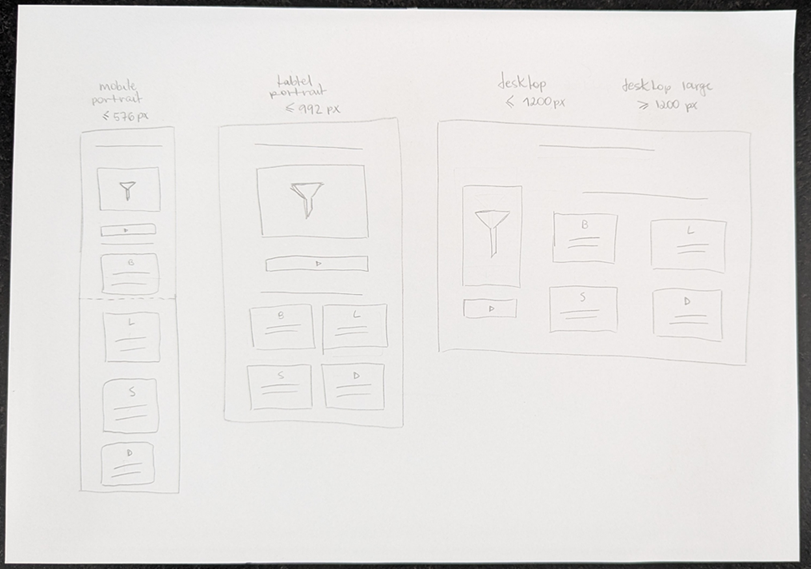 mobile
portrait
≤ 576 px
tablet
portrait
≤ 992 px
desktop
≤ 1200 px
desktop large
≥ 1200 px
B
L
S
D
B
L
S
D
B
L
S
D